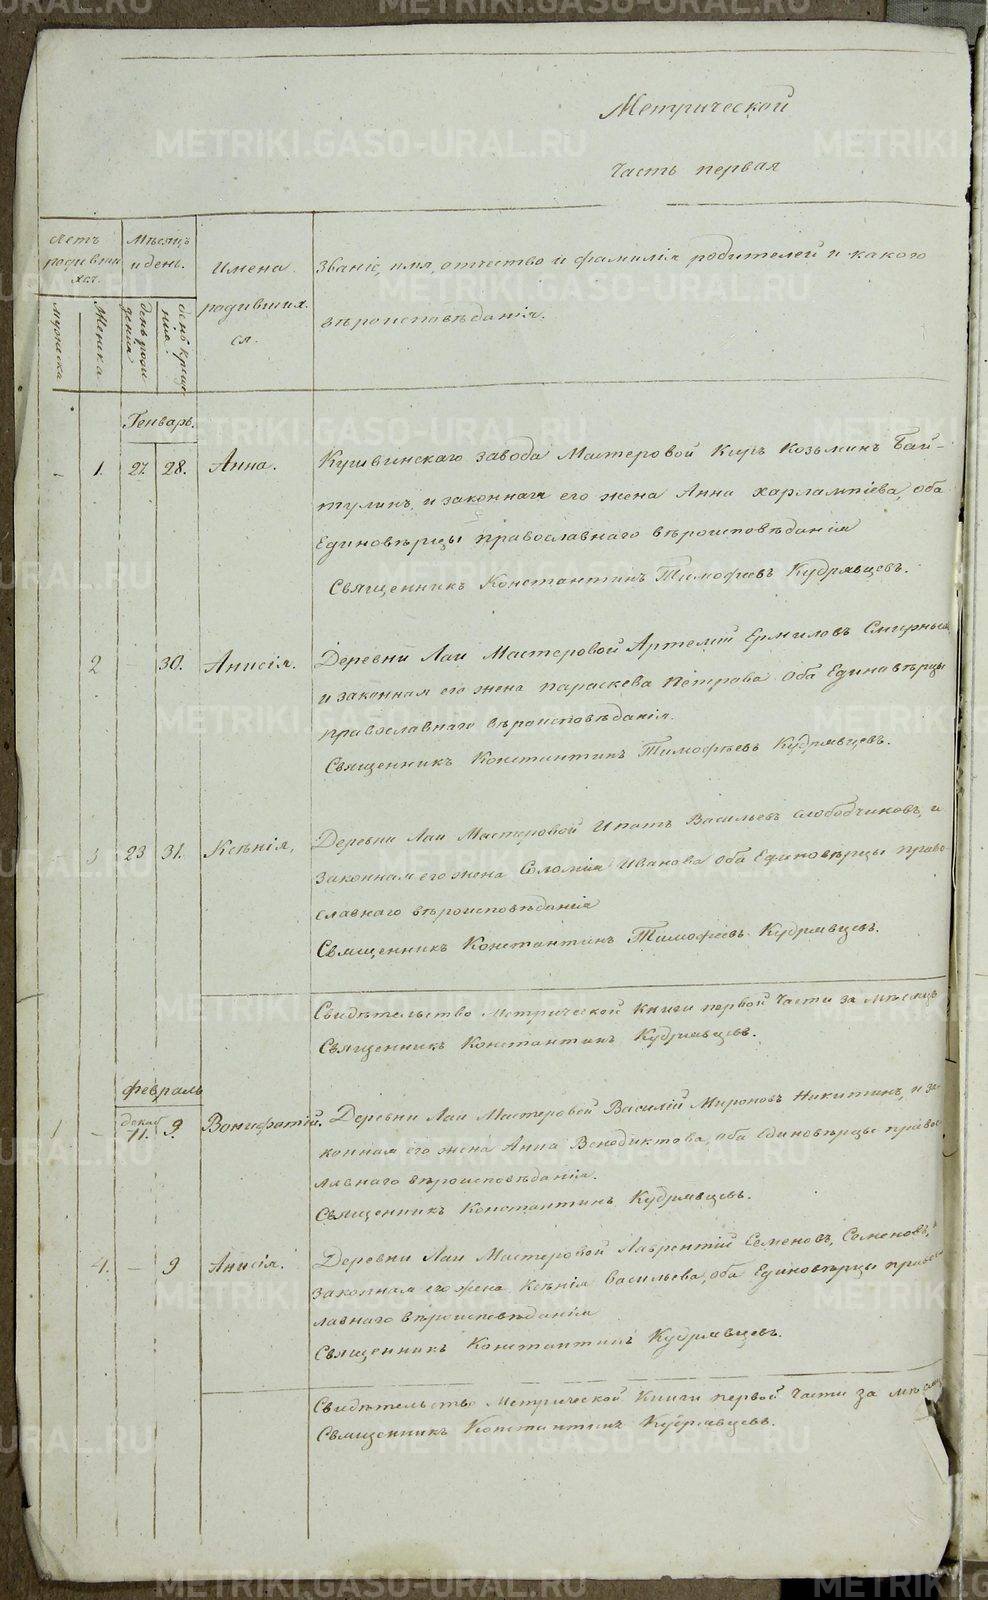 Метрической
Часть первая
Летъ родившихся.
Мѣсяцъ и день.
Имена родившихся.
Званіе, имя, отчество и фамилія родителей и какого
вѣроисповѣданія.
мужеска
Женска
день рождения
день крещенія.
Генварь.
1. 27. 28. Анна. Кушвинскаго завода Мастеровой Киръ Козьминъ Бай-
тулинъ, и законная его жена Анна Харлампіева, оба
Единовѣрцы православнаго вѣроисповѣданія
Священникъ Константинъ Тимофеевъ Кудрявцевъ.
2 — 30. Анисія. Деревни Лаи Мастеровой Артемій Ермиловъ
и законная его жена Параскева Петрова оба Единовѣрцы
православнаго вѣроисповѣданія.
Священникъ Константинъ Тимофѣевъ Кудрявцевъ.
3 23 31. Ксѣнія, Деревни Лаи Мастеровой Ипатъ Васильевъ Слободчиковъ, и
законная его жена Соломія Иванова оба Единовѣрцы право
славнаго вѣроисповѣданія
Священникъ Константинъ Тимофеевъ Кудрявцевъ.
Свидѣтельство Метрической Книги первой Части за мѣсяцъ
Священникъ Константинъ Кудрявцевъ.
февраль
1 — декаб 11. 9. Вонифатій. Деревни Лаи Мастеровой Василій Мироновъ Никитинъ, и за-
конная его жена Анна Венедиктова, оба Единовѣрцы правос
лавнаго вѣроисповѣданія.
Священникъ Константинъ Кудрявцевъ.
4. — 9 Анисія. Деревни Лаи Мастеровой Лаврентій Семеновъ, Семеновъ, и
законная его жена Ксѣнія Васильева, оба Единовѣрцы правос
лавнаго вѣроисповѣданія
Священникъ Константинъ Кудрявцевъ.
Свидѣтельство Метрической Книги первой Части за мѣсяцъ
Священникъ Константинъ Кудрявцевъ.
METRIKI.GASO-URAL.RU